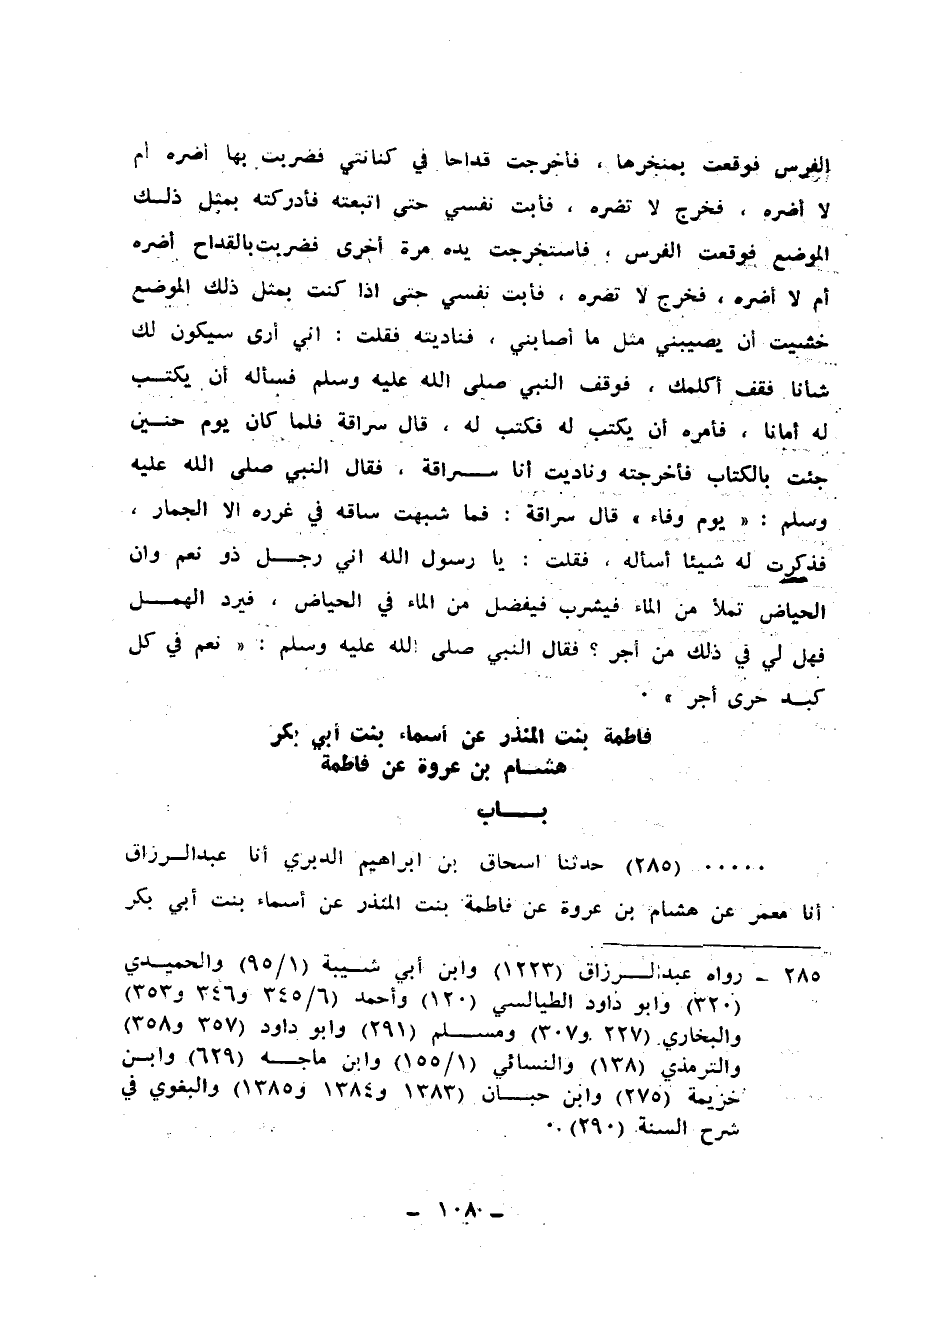 الفرس فوقعت بمنخرها ، فأخرجت قداحا في كنانتي فضربت بها أضره أم
لا أضره ، فخرج لا تضره ، فأبت نفسي حتى اتبعته فأدركته بمثل ذلــك
الموضع فوقعت الفرس ، فاستخرجت يده مرة أخرى فضربت بالقداح أضره
أم لا أضره ، فخرج لا تضره ، فأبت نفسي حتى اذا كنت بمثل ذلك الموضع
خشيت أن يصيبني مثل ما أصابني ، فناديته فقلت : اني أرى سيكون لك
شأنا فقف أكلمك ، فوقف النبي صلى الله عليه وسلم فسأله أن يكتــب
له أمانا ، فأمره أن يكتب له فكتب له ، قال سراقة فلما كان يوم حنــين
جئت بالكتاب فأخرجته وناديت أنا ســـراقة ، فقال النبي صلى الله عليه
وسلم : « يوم وفاء » قال سراقة : فما شبهت ساقه في غرره الا الجمار ،
فذكرت له شيئا أسأله ، فقلت : يا رسول الله اني رجــل ذو نعم وان
الحياض تملأ من الماء فيشرب فيفضل من الماء في الحياض ، فيرد الهمــل
فهل لي في ذلك من أجر ؟ فقال النبي صلى الله عليه وسلم : « نعم في كل
كبــد حرى أجر » ٠
فاطمة بنت المنذر عن أسماء بنت أبي بكر
هشــام بن عروة عن فاطمة
بـــاب
٠٠٠٠٠ (٢٨٥) حدثنا اسحاق بن ابراهيم الدبري أنا عبدالــرزاق
أنا معمر عن هشام بن عروة عن فاطمة بنت المنذر عن أسماء بنت أبي بكر
٢٨٥ ـ رواه عبدالــرزاق (١٢٢٣) وابن أبي شــيبة (٩٥/١) والحميــدي
(٣٢٠) وابو داود الطيالسي (١٢٠) وأحمد (٣٤٥/٦ و٣٤٦ و٣٥٣)
والبخاري (٢٢٧ و٣٠٧) ومســلم (٢٩١) وابو داود (٣٥٧ و٣٥٨)
والترمذي (١٣٨) والنسائي (١٥٥/١) وابن ماجــه (٦٢٩) وابــن
خزيمة (٢٧٥) وابن حبــان (١٣٨٣ و١٣٨٤ و١٣٨٥) والبغوي في
شرح السنة (٢٩٠) ٠
ـ ١٠٨٠ ـ